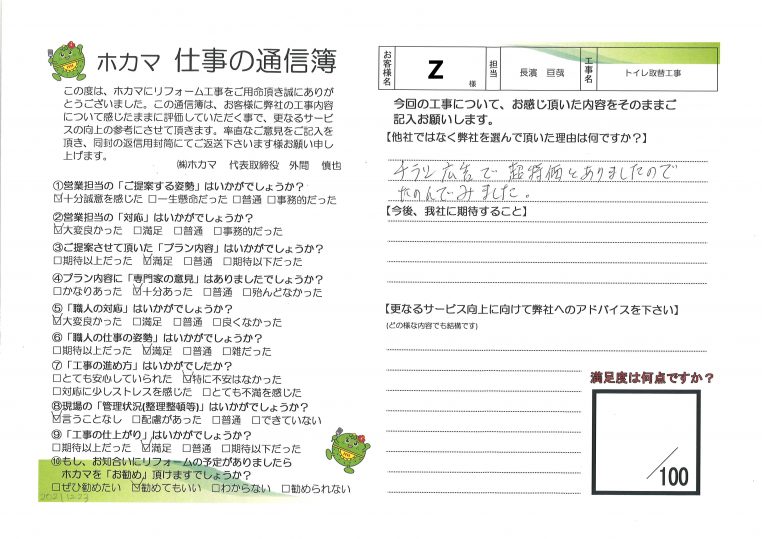 ホカマ 仕事の通信簿
この度は、ホカマにリフォーム工事をご用命頂き誠にありが
とうございました。この通信簿は、お客様に弊社の工事内容
について感じたままに評価していただく事で、更なるサービ
スの向上の参考にさせて頂きます。率直なご意見をご記入を
頂き、同封の返信用封筒にてご返送下さいます様お願い申し
上げます。
㈱ホカマ 代表取締役 外間 愼也
①営業担当の「ご提案する姿勢」はいかがでしょうか?
☑十分誠意を感じた □一生懸命だった □普通 □事務的だった
②営業担当の「対応」はいかがでしょうか?
☑大変良かった □満足 □普通 □事務的だった
③ご提案させて頂いた「プラン内容」はいかがでしょうか?
□期待以上だった ☑満足 □普通 □期待以下だった
④プラン内容に「専門家の意見」はありましたでしょうか?
□かなりあった ☑十分あった □普通 □殆んどなかった
⑤「職人の対応」はいかがでしょうか?
☑大変良かった □満足 □普通 □良くなかった
⑥「職人の仕事の姿勢」はいかがでしょうか?
□期待以上だった ☑満足 □普通 □雑だった
⑦「工事の進め方」はいかがでしたか?
□とても安心していられた ☑特に不安はなかった
□対応に少しストレスを感じた □とても不満を感じた
⑧現場の「管理状況(整理整頓等)」はいかがでしょうか?
☑言うことなし □配慮があった □普通 □できていない
⑨「工事の仕上がり」はいかがでしょうか?
□期待以上だった ☑満足 □普通 □期待以下だった
⑩もし、お知合いにリフォームの予定がありましたら
ホカマを「お勧め」頂けますでしょうか?
□ぜひ勧めたい ☑勧めてもいい □わからない □勧められない
2021.12.23
お客様名 Z 様 担当 長濱 亘哉 工事名 トイレ取替工事
今回の工事について、お感じ頂いた内容をそのままご
記入お願いします。
【他社ではなく弊社を選んで頂いた理由は何ですか?】
チラシ広告で超特価とありましたので
たのんでみました。
【今後、我社に期待すること】
【更なるサービス向上に向けて弊社へのアドバイスを下さい】
(どの様な内容でも結構です)
満足度は何点ですか?
/100